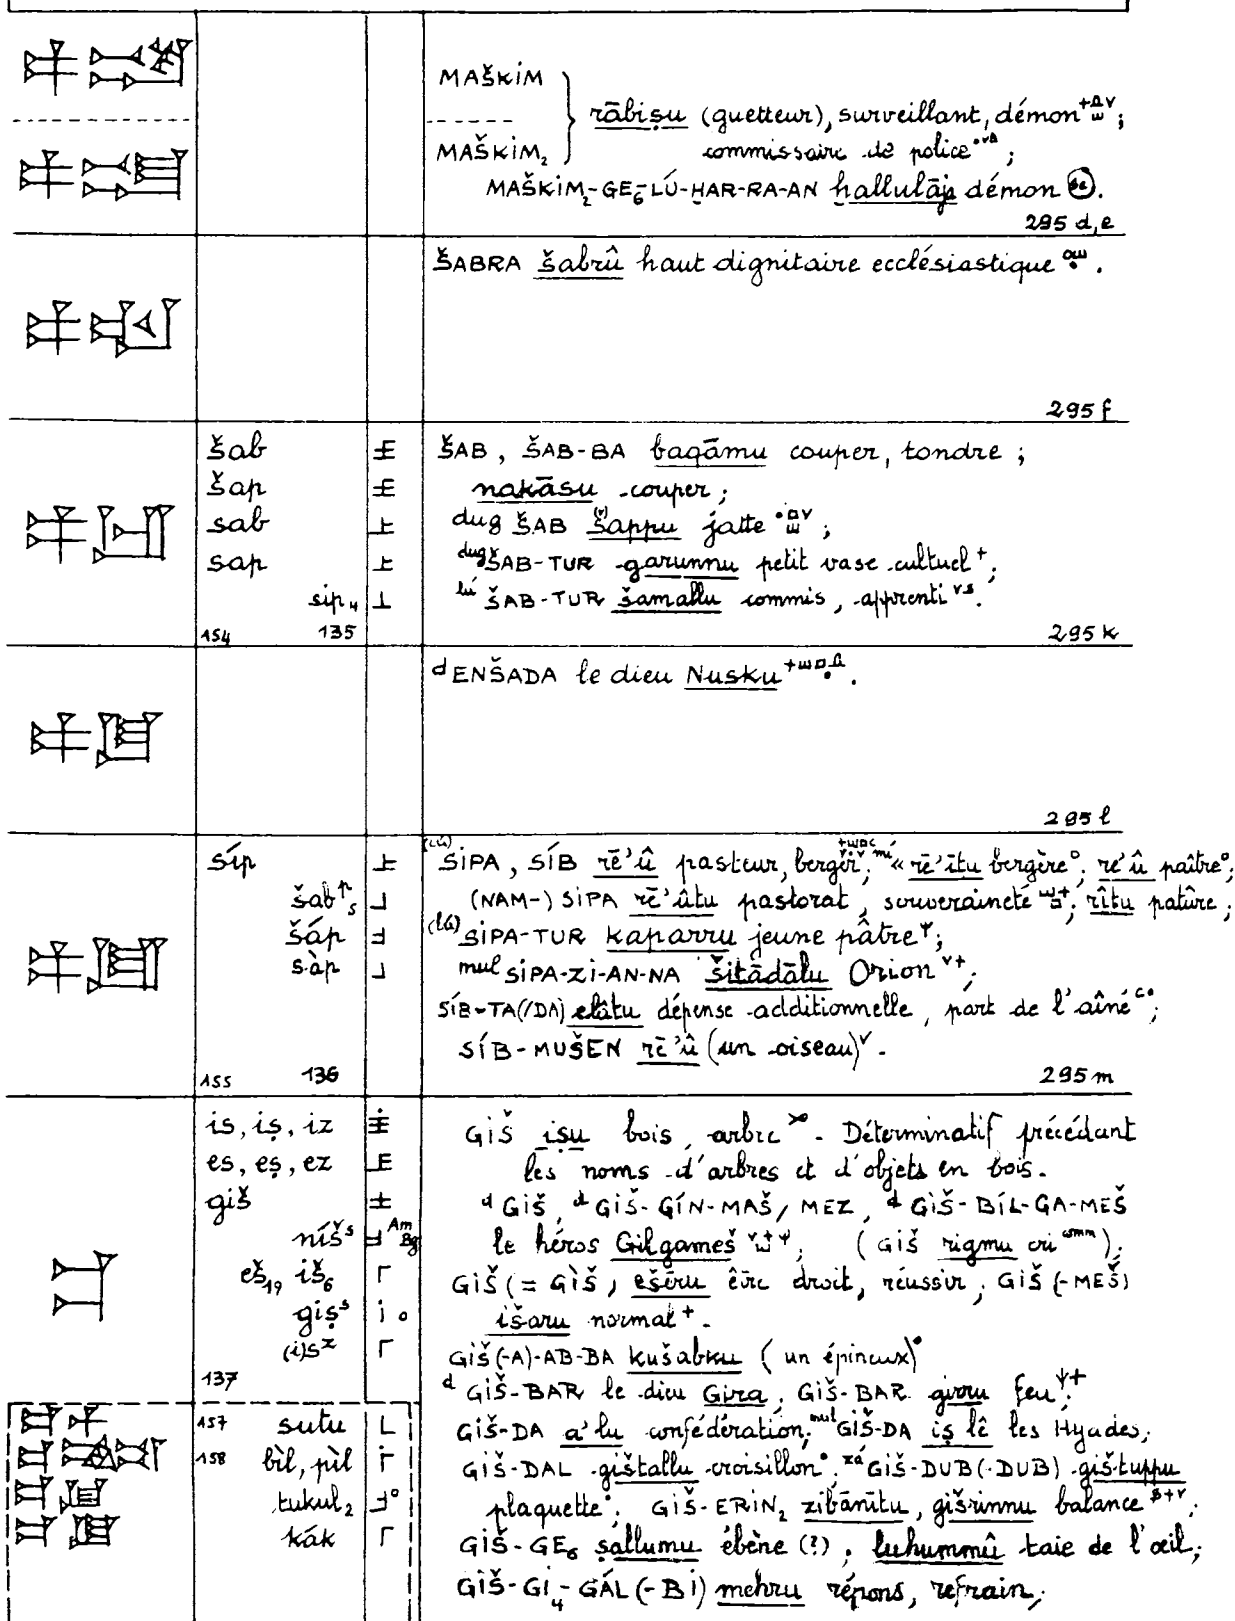 MAŠKIM
MAŠKIM₂
rābiṣu (guetteur), surveillant, démon ;
commissaire de police ;
MAŠKIM₂-GE₆-LÚ-ḪAR-RA-AN ḫallulāja démon
295 d,e
ŠABRA šabrû haut dignitaire ecclésiastique .
295 f
šab
šap
sab
sap
sip₄
154 135
ŠAB, ŠAB-BA baqāmu couper, tondre ;
nakāsu couper ;
dug ŠAB šappu jatte ;
dug ŠAB-TUR garunnu petit vase cultuel + ;
lú ŠAB-TUR šamallu commis, apprenti vs.
295 k
d ENŠADA le dieu Nusku .
295 l
síp
šab
šáp
sàp
155 136
(LÚ) SIPA, SÍB rē'û pasteur, berger ; mí " rē'ītu bergère° ; re'û paître° ;
(NAM-) SIPA rē'ûtu pastorat, souveraineté ; rîtu pature ;
(lú) SIPA-TUR kaparru jeune pâtre ;
mul SIPA-ZI-AN-NA šitādālu Orion v+ ;
SÍB-TA(/DA) elâtu dépense additionnelle, part de l'aîné ;
SÍB-MUŠEN rē'û (un oiseau) v .
295 m
is, iṣ, iz
es, eṣ, ez
giš
níš s Am Bg
eš₁₉ iš₆
giṣ s
(i)s z
137
GIŠ iṣu bois, arbre . Déterminatif précédant
les noms d'arbres et d'objets en bois.
d GIŠ, d GIŠ-GÍN-MAŠ/MEZ, d GIŠ-BÍL-GA-MEŠ
le héros Gilgameš ; (GIŠ rigmu cri comm) ;
GIŠ (= GÌŠ) ešēru être droit, réussir ; GIŠ (-MEŠ)
išaru normal + .
GIŠ(-A)-AB-BA kušabku (un épineux)
d GIŠ-BAR le dieu Gira ; GIŠ-BAR girru feu ;
157 sutu
158 bìl, pìl
tukul₂
kák
GIŠ-DA a'lu confédération ; mul GIŠ-DA iṣ lê les Hyades ;
GIŠ-DAL gištallu croisillon ; zá GIŠ-DUB(-DUB) gištuppu
plaquette ; GIŠ-ERIN₂ zibānītu, gišrinnu balance ;
GIŠ-GE₆ ṣallumu ébène (?) ; luhummû taie de l'œil ;
GIŠ-GI₄-GÁL (-BI) mehru répons, refrain ;